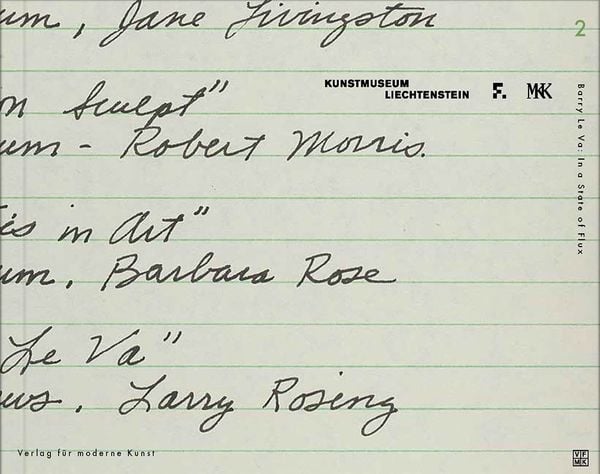 um, Jane Livingston
2
KUNSTMUSEUM
LIECHTENSTEIN
F.
MMK
Barry Le Va: In a State of Flux
n Sculpt"
um - Robert Morris.
is in Art"
um, Barbara Rose
Le Va"
ws, Larry Rosing
Verlag für moderne Kunst
VF
MK